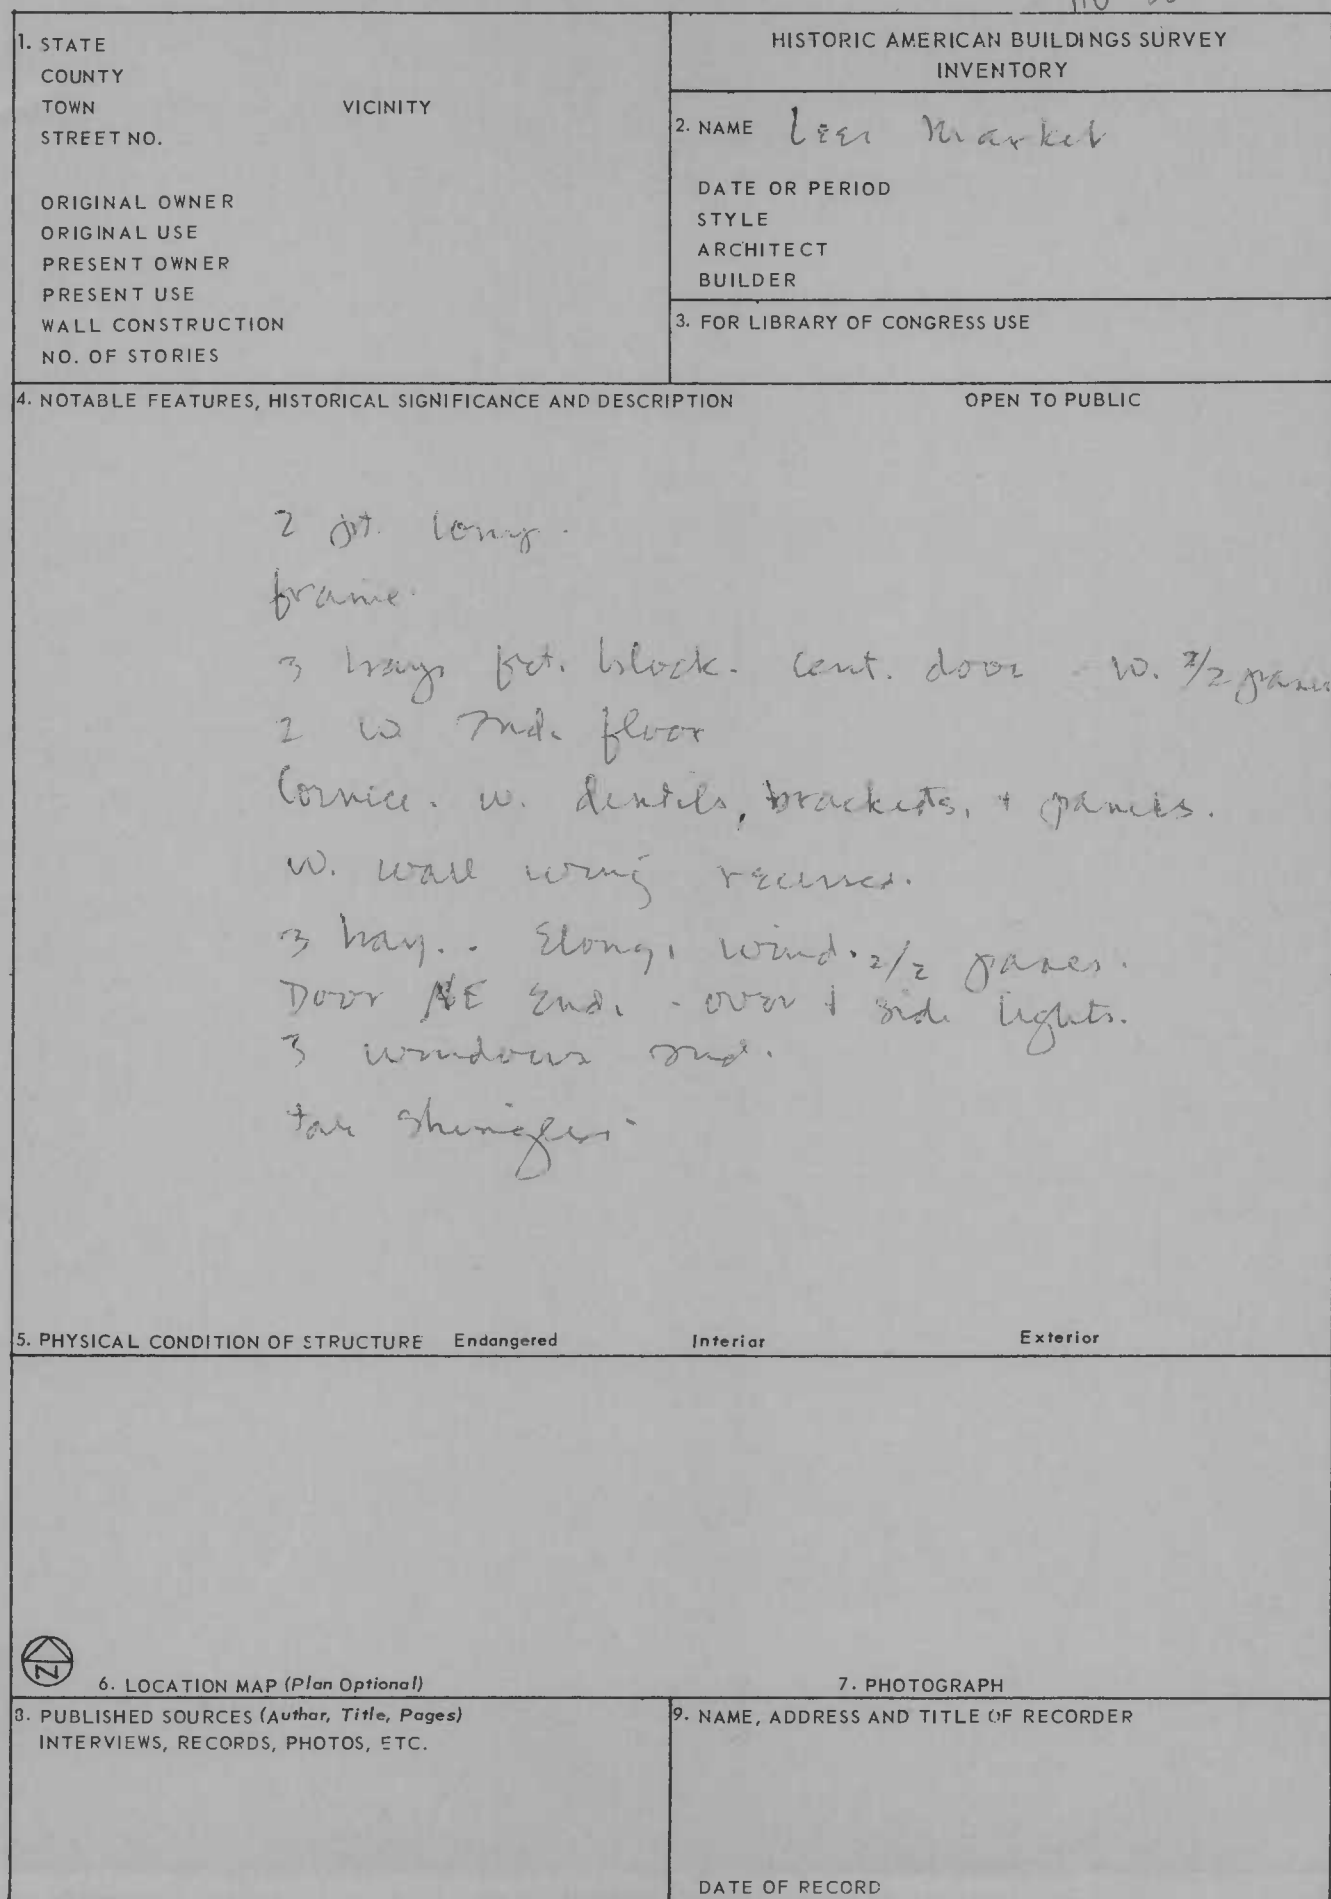 1. STATE
COUNTY
TOWN VICINITY
STREET NO.
ORIGINAL OWNER
ORIGINAL USE
PRESENT OWNER
PRESENT USE
WALL CONSTRUCTION
NO. OF STORIES
HISTORIC AMERICAN BUILDINGS SURVEY
INVENTORY
2. NAME Lees Market
DATE OR PERIOD
STYLE
ARCHITECT
BUILDER
3. FOR LIBRARY OF CONGRESS USE
4. NOTABLE FEATURES, HISTORICAL SIGNIFICANCE AND DESCRIPTION OPEN TO PUBLIC
2 st. long.
frame.
3 bays frt. block. cent. door w. 2/2 panes
2 w 2nd. floor
Cornice. w. dentils, brackets, + panels.
W. wall wing recessed.
3 bay.. Elong. wind. 2/2 panes.
Door NE End. - over + side lights.
3 windows 2nd.
tar shingles.
5. PHYSICAL CONDITION OF STRUCTURE Endangered Interior Exterior
N
6. LOCATION MAP (Plan Optional)
7. PHOTOGRAPH
8. PUBLISHED SOURCES (Author, Title, Pages)
INTERVIEWS, RECORDS, PHOTOS, ETC.
9. NAME, ADDRESS AND TITLE OF RECORDER
DATE OF RECORD